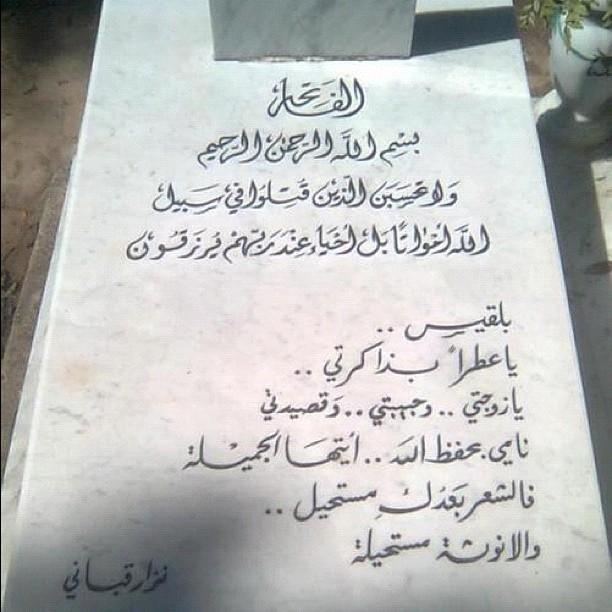 الفاتحة
بسم الله الرحمن الرحيم
ولا تحسبن الذين قتلوا في سبيل
الله أمواتًا بل أحياء عند ربهم يرزقون
بلقيس ..
يا عطراً بذاكرتي ..
يا زوجتي .. وحبيبتي .. وقصيدتي
نامي بحفظ الله .. أيتها الجميلة
فالشعر بعدكِ مستحيل ..
والانوثة مستحيلة
نزار قباني